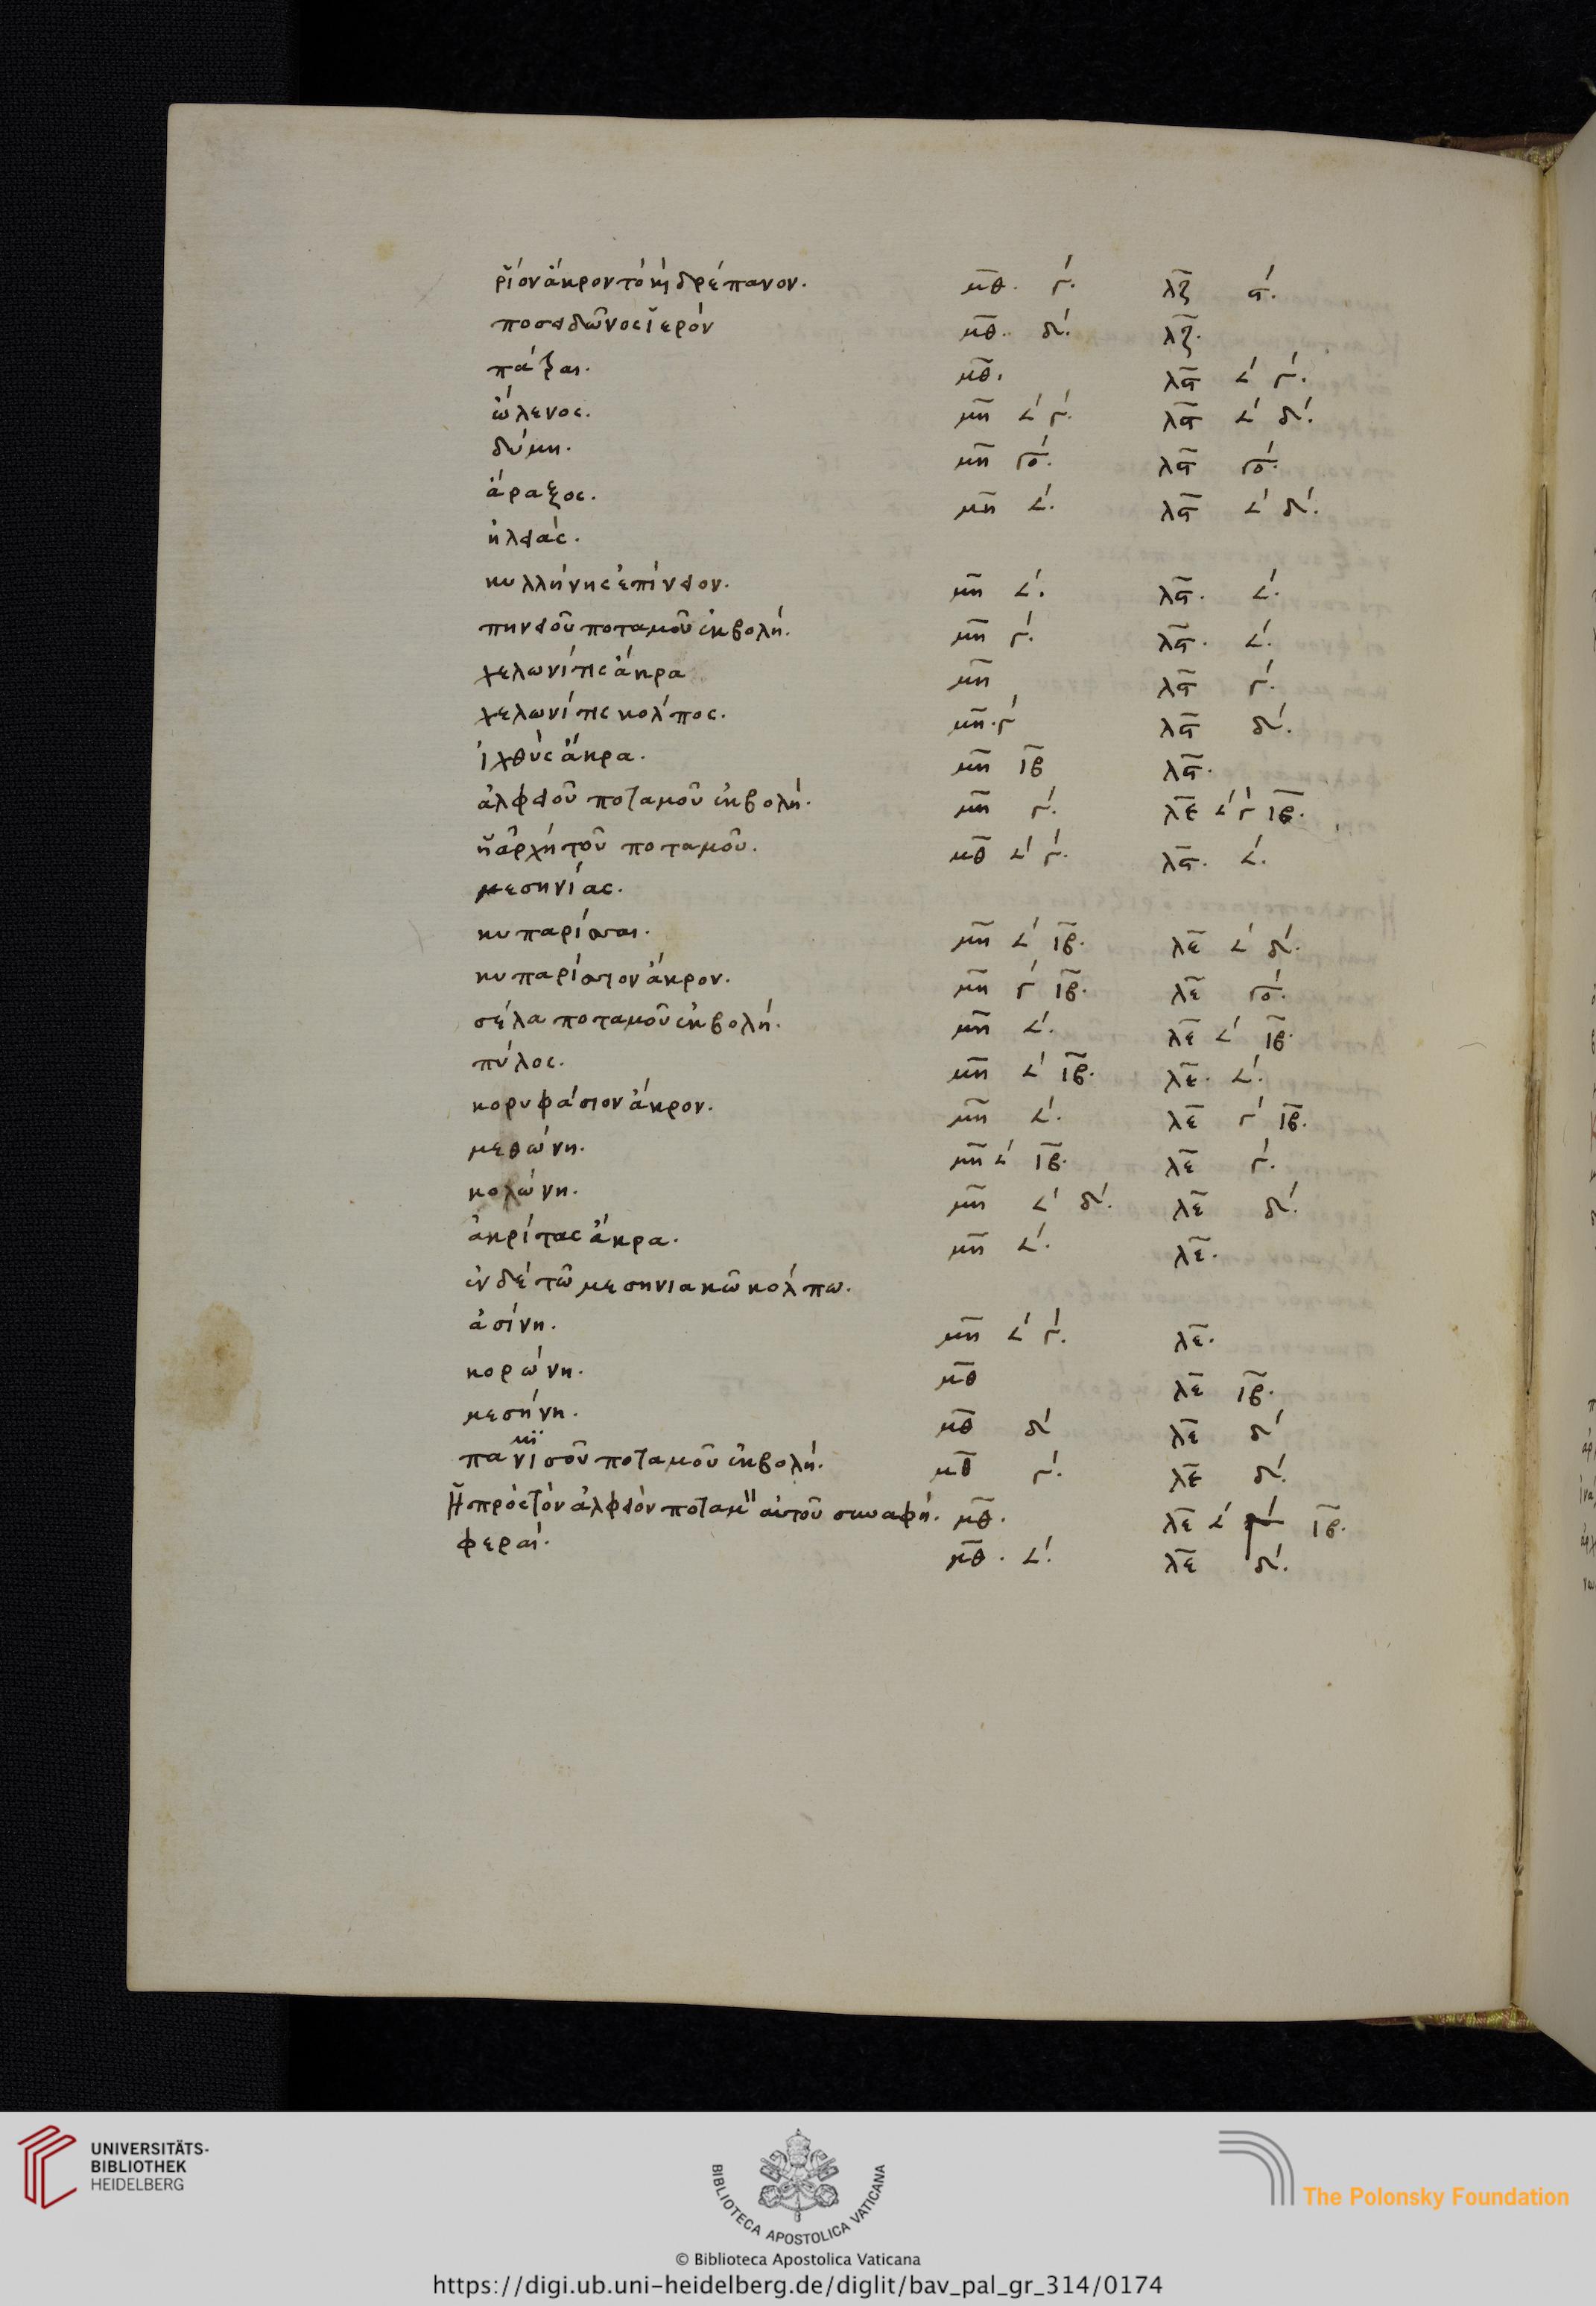 ῥίον ἄκρον τὸ καὶ δρέπανον. μ̅θ̅. γ´. λ̅ζ̅ ϛ´.
ποσειδῶνος ἱερόν μ̅θ̅. δ´. λ̅ζ̅.
πάτραι. μ̅θ̅. λ̅ϛ̅ ∠´ γ´.
ὤλενος. μ̅η̅ ∠´ γ´. λ̅ϛ̅ ∠´ δ´.
δύμη. μ̅η̅ γο´. λ̅ϛ̅ γο´.
ἄραξος. μ̅η̅ ∠´. λ̅ϛ̅ ∠´ δ´.
ἠλείας.
κυλλήνης ἐπίνειον. μ̅η̅ ∠´. λ̅ϛ̅. ∠´.
πηνειοῦ ποταμοῦ ἐκβολή. μ̅η̅ γ´. λ̅ϛ̅. ∠´.
χελωνίτις ἄκρα μ̅η̅ λ̅ϛ̅ γ´.
χελωνίτις κόλπος. μ̅η̅. γ´ λ̅ϛ̅ δ´.
ἰχθὺς ἄκρα. μ̅η̅ ι̅β̅ λ̅ϛ̅.
ἀλφειοῦ ποταμοῦ ἐκβολή. μ̅η̅ γ´. λ̅ε̅ ∠´ γ´ ι̅β̅.
ἡ ἀρχὴ τοῦ ποταμοῦ. μ̅θ̅ ∠´ γ´. λ̅ϛ̅. ∠´.
μεσηνίας.
κυπαρίσσαι. μ̅η̅ ∠´ ι̅β̅. λ̅ε̅ ∠´ δ´.
κυπαρίσσιον ἄκρον. μ̅η̅ γ´ ι̅β̅. λ̅ε̅ γο´.
σέλα ποταμοῦ ἐκβολή. μ̅η̅ ∠´. λ̅ε̅ ∠´ ι̅β̅.
πύλος. μ̅η̅ ∠´ ι̅β̅. λ̅ε̅. ∠´.
κορυφάσιον ἄκρον. μ̅η̅ ∠´. λ̅ε̅ γ´ ι̅β̅.
μεθώνη. μ̅η̅ ∠´ ι̅β̅. λ̅ε̅ γ´.
κολώνη. μ̅η̅ ∠´ δ´. λ̅ε̅ δ´.
ἀκρίτας ἄκρα. μ̅η̅ ∠´. λ̅ε̅.
ἐν δὲ τῶ μεσηνιακῶ κόλπω.
ἀσίνη. μ̅η̅ ∠´ γ´. λ̅ε̅.
κορώνη. μ̅θ̅ λ̅ε̅ ι̅β̅.
μεσήνη. μ̅θ̅ δ´ λ̅ε̅ δ´
πανισοῦ ποταμοῦ ἐκβολή. μ̅θ̅ γ´. λ̅ε̅ δ´.
Ἡ πρὸς τὸν ἀλφειὸν ποταμ αὐτοῦ συναφή. μ̅θ̅. λ̅ε̅ ∠´ ι̅β̅.
φεραί. μ̅θ̅. ∠´. λ̅ε̅ δ´.
UNIVERSITÄTS-
BIBLIOTHEK
HEIDELBERG
BIBLIOTECA APOSTOLICA VATICANA
The Polonsky Foundation
© Biblioteca Apostolica Vaticana
https://digi.ub.uni-heidelberg.de/diglit/bav_pal_gr_314/0174